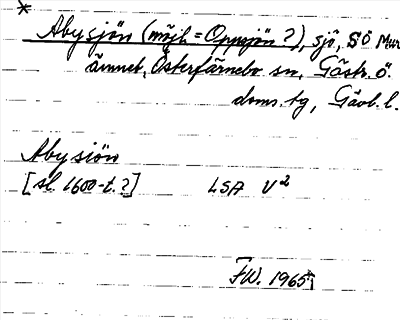 Abysjön (möjl. = Oppsjön?), sjö, SÖ Mur
ämnet, Österfärnebo sn, Gästr. ö.
doms. tg, Gävl. l.
Aby siön
[sl. 1600-t.?] LSA V²
FW. 1965